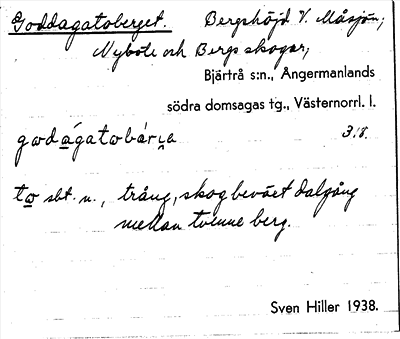 Goddagatoberget. Bergshöjd V. Måsjön;
Nybole och Bergs skogar;
Bjärtrå s:n., Ångermanlands
södra domsagas tg., Västernorrl. l.
godágatobárja 3/8.
to sbt. n., trång, skogbeväxt dalgång
mellan tvenne berg.
Sven Hiller 1938.